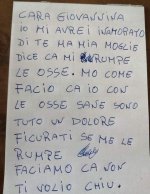 CARA GIOVANNINA
IO MI AVREI INAMORATO
DI TE MA MIA MOGLIE
DICE CA MI RUMPE
LE OSSE. MO COME
FACIO CA IO CON
LE OSSE SANE SONO
TUTO UN DOLORE
FIGURATI SE ME LE
RUMPE
FACIAMO CA NON
TI VOLIO CHIU.